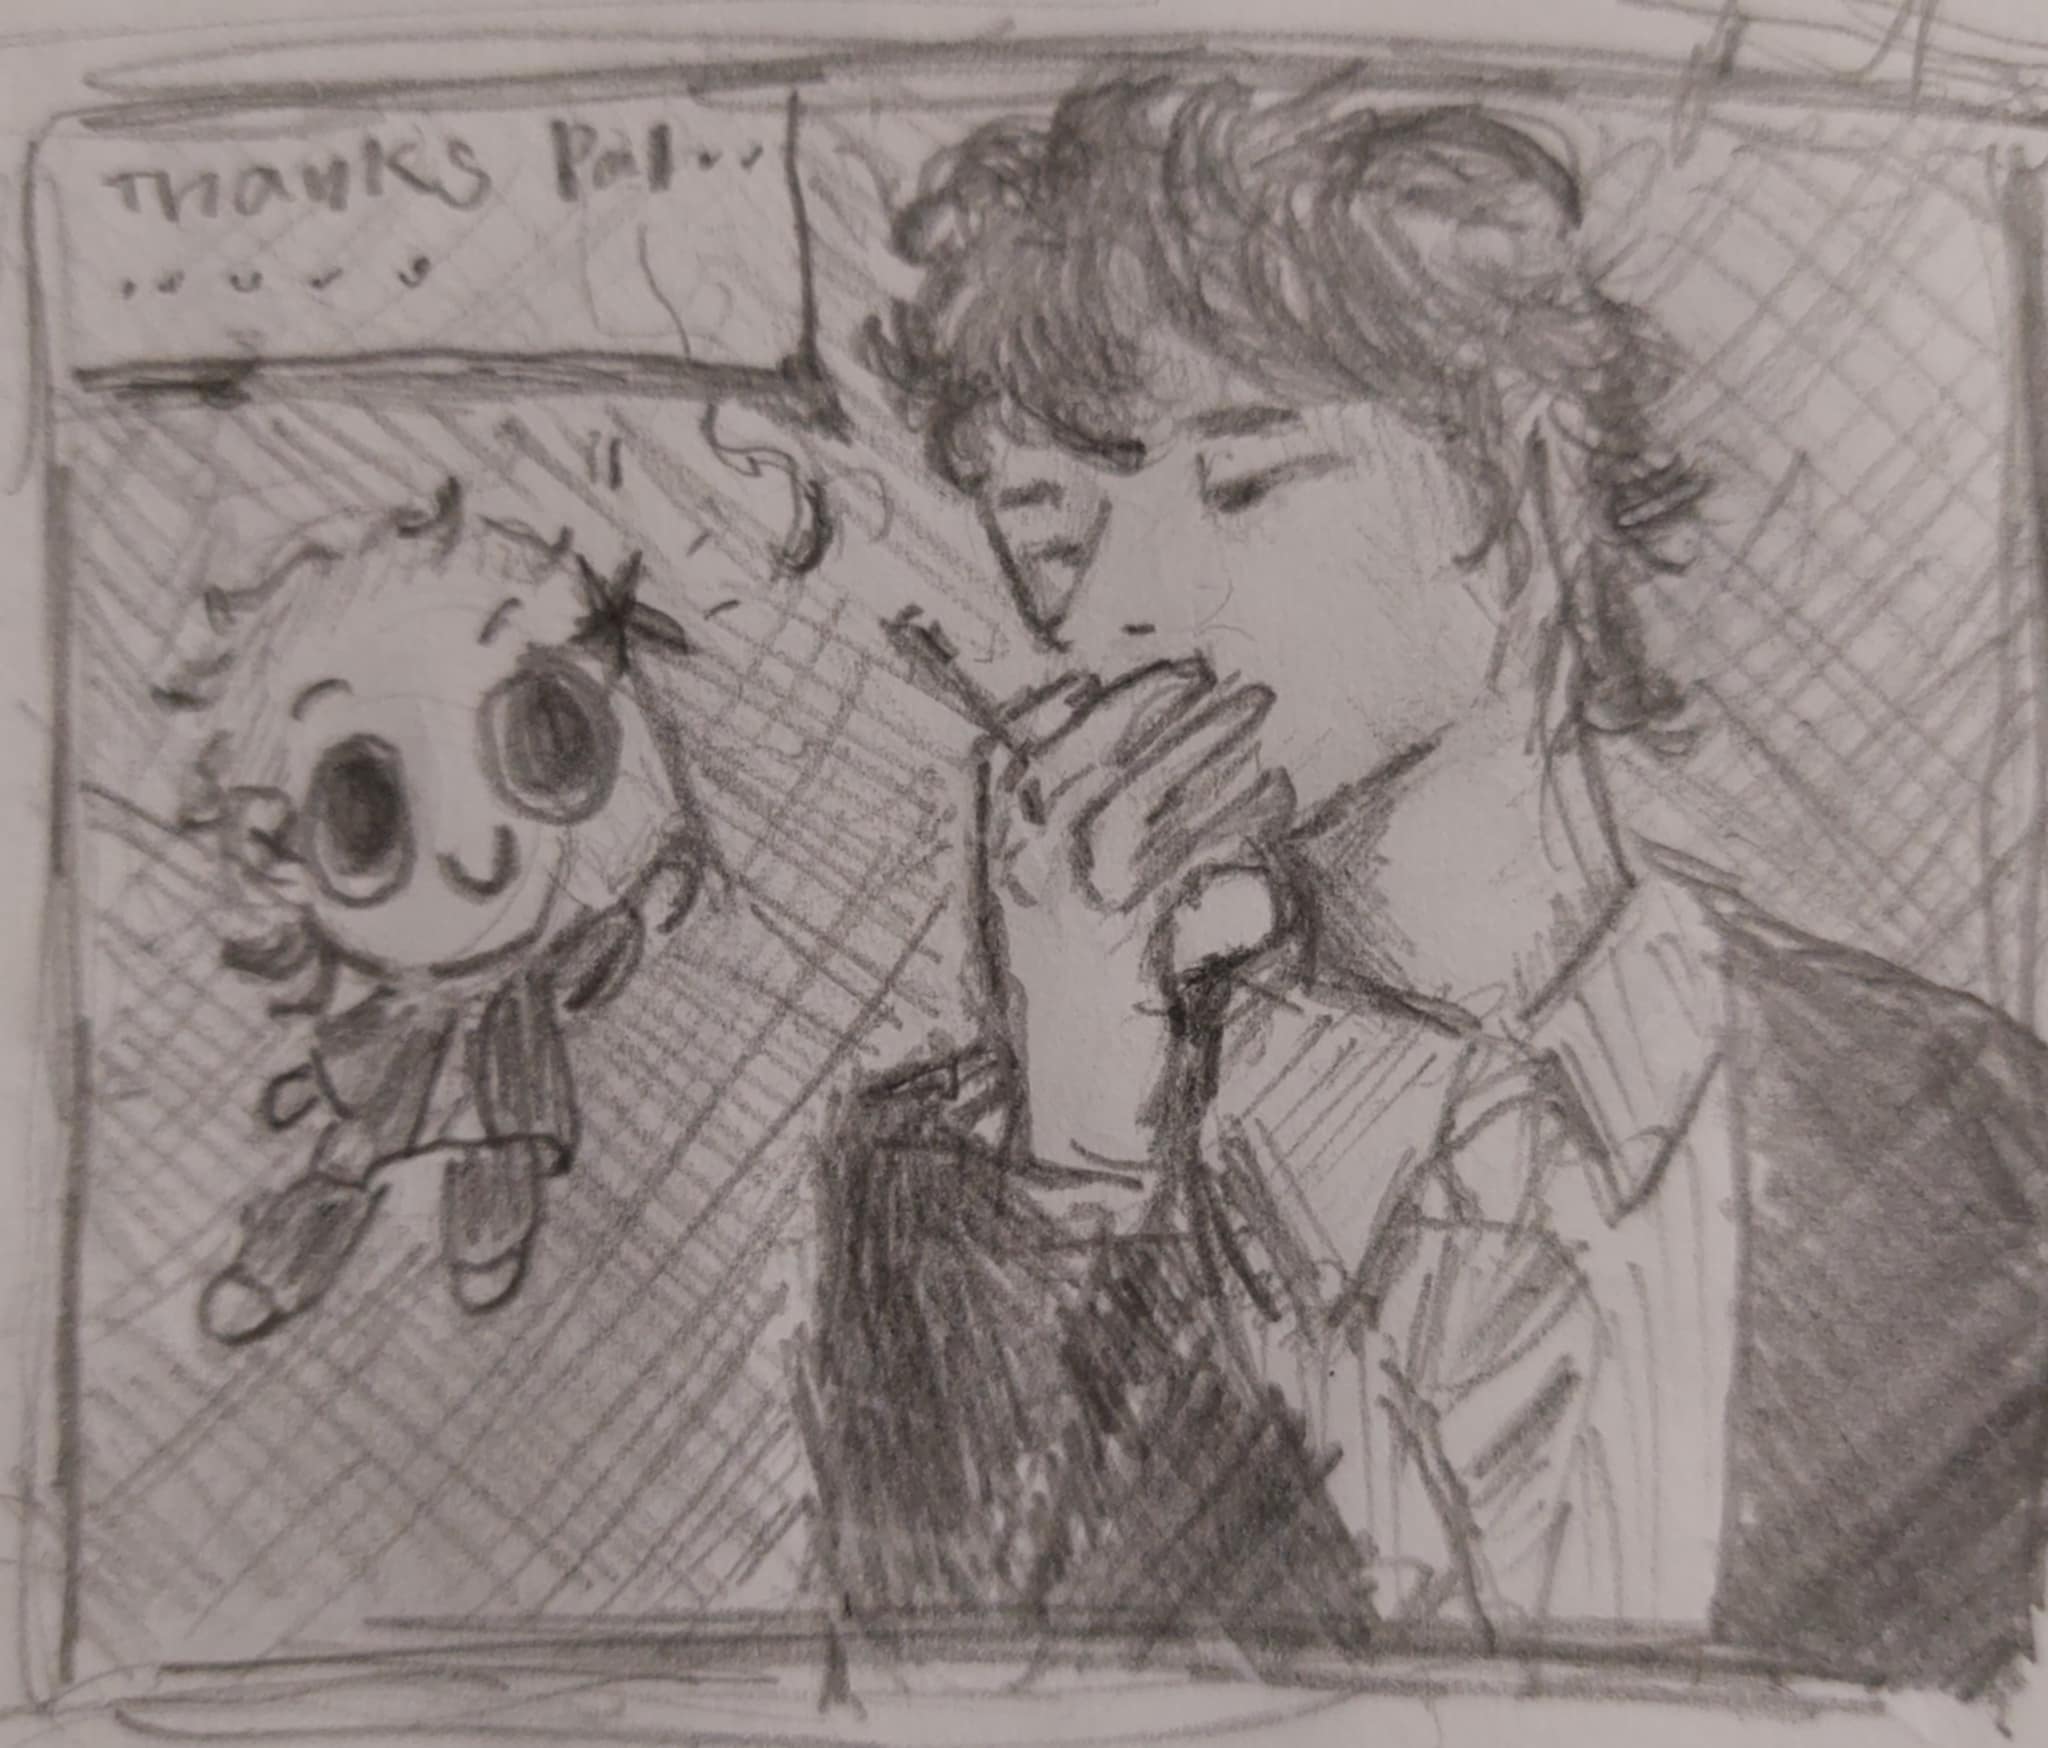 Thanks Pal..
.....